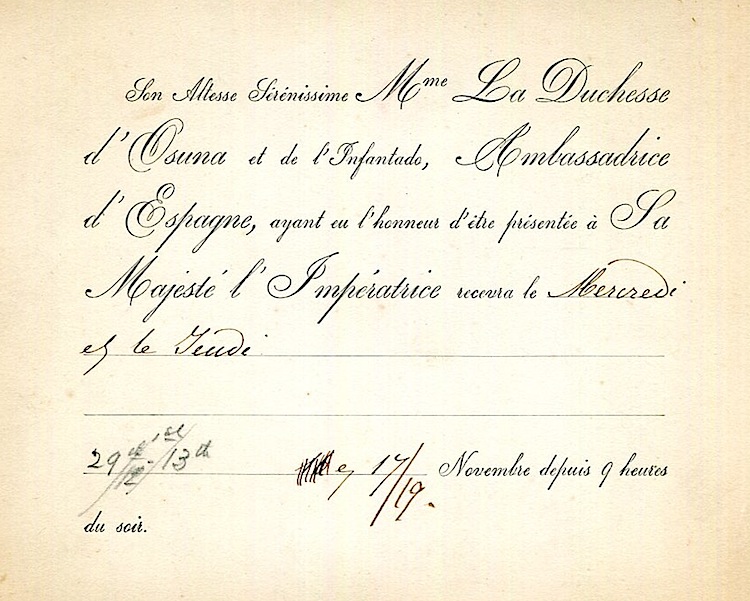 Son Altesse Sérénissime Mme La Duchesse
d'Osuna et de l'Infantado, Ambassadrice
d'Espagne, ayant eu l'honneur d'être présentée à Sa
Majesté l'Impératrice recevra le Mercredi
et le Jeudi
29 13 17/19. Novembre depuis 9 heures
du soir.